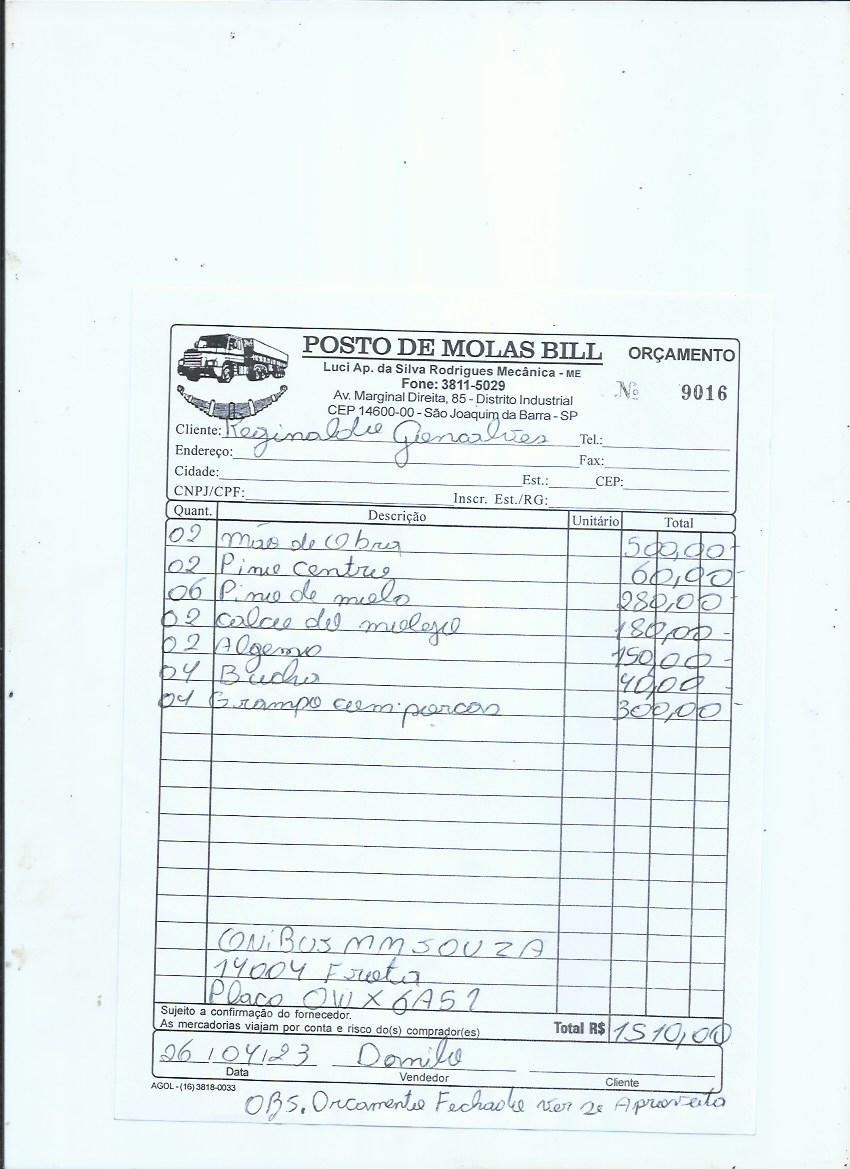 POSTO DE MOLAS BILL
ORÇAMENTO
Luci Ap. da Silva Rodrigues Mecânica - ME
Fone: 3811-5029
Av. Marginal Direita, 85 - Distrito Industrial
CEP 14600-00 - São Joaquim da Barra - SP
Nº 9016
Cliente: Reginaldo Gonsalves Tel.:
Endereço: Fax:
Cidade: Est.: CEP:
CNPJ/CPF: Inscr. Est./RG:
Quant. Descrição Unitário Total
02 Mão de Obra 500,00
02 Pino centro 60,00
06 Pino de mola 280,00
02 calço del molejo 180,00
02 Algema 150,00
04 Bucha 40,00
04 Grampo com porcas 300,00
ONiBUS MM SOUZA
14004 Frota
Placa OWX 6A52
Sujeito a confirmação do fornecedor.
As mercadorias viajam por conta e risco do(s) comprador(es)
Total R$ 1510,00
26/04/23 Danilo
Data Vendedor Cliente
AGOL - (16) 3818-0033
OBS. Orcamento Fechado ver se Aproveita